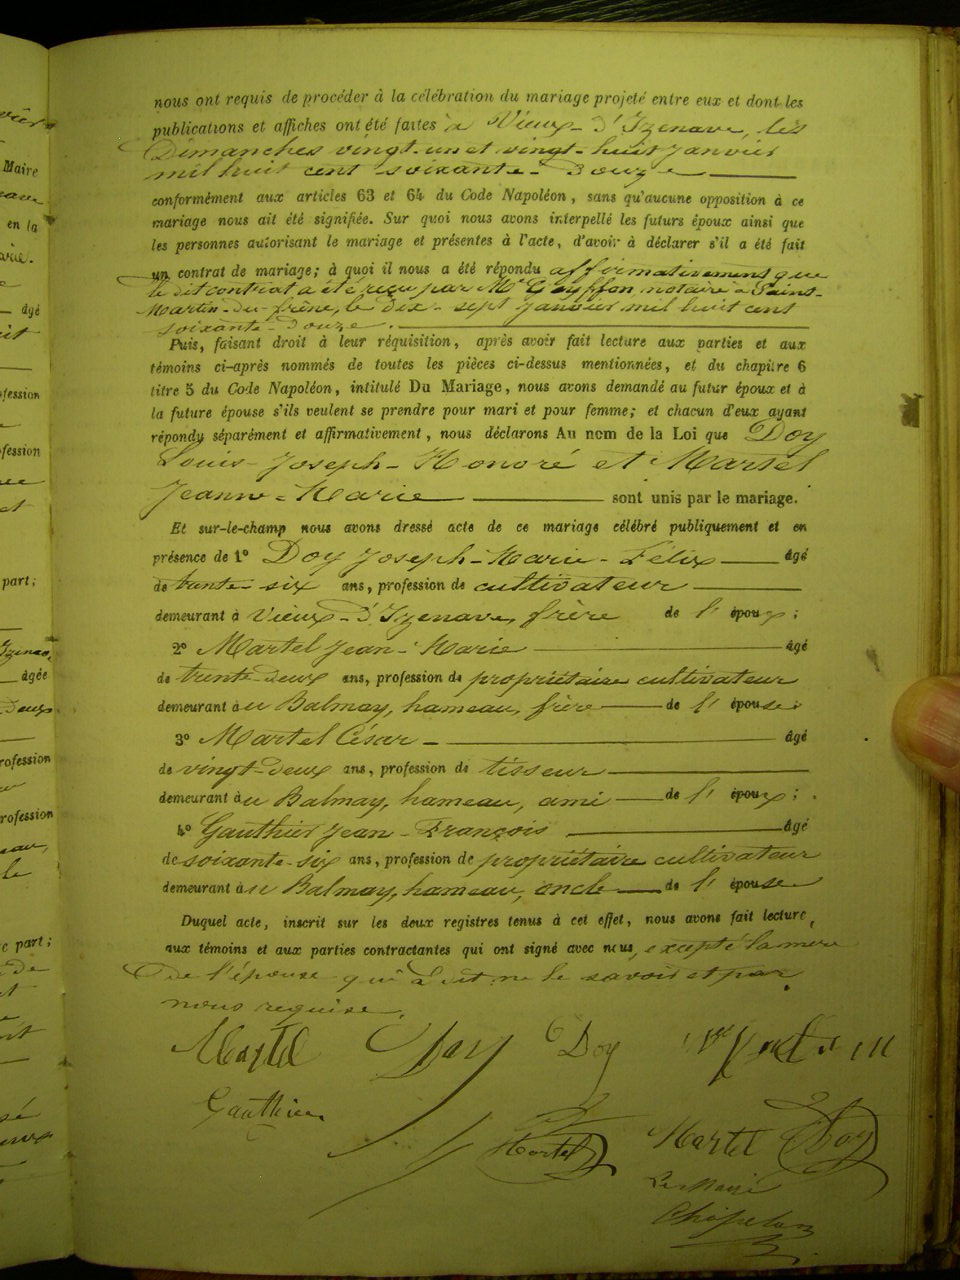 nous ont requis de procéder à la célébration du mariage projeté entre eux et dont les
publications et affiches ont été faites à Vieux-d'Izenave, les
Dimanches vingt-un et vingt-huit janvier
mil huit cent soixante-douze
conformément aux articles 63 et 64 du Code Napoléon, sans qu'aucune opposition à ce
mariage nous ait été signifiée. Sur quoi nous avons interpellé les futurs époux ainsi que
les personnes autorisant le mariage et présentes à l'acte, d'avoir à déclarer s'il a été fait
un contrat de mariage; à quoi il nous a été répondu affirmativement que
le dit contrat a été reçu par Me notaire à Saint-
Martin-du-frêne, le dix-sept janvier mil huit cent
soixante-douze.
Puis, faisant droit à leur réquisition, après avoir fait lecture aux parties et aux
témoins ci-après nommés de toutes les pièces ci-dessus mentionnées, et du chapitre 6
titre 5 du Code Napoléon, intitulé Du Mariage, nous avons demandé au futur époux et à
la future épouse s'ils veulent se prendre pour mari et pour femme; et chacun d'eux ayant
répondu séparément et affirmativement, nous déclarons Au nom de la Loi que Doy
Louis-Joseph-Honoré et Martel
Jeanne-Marie sont unis par le mariage.
Et sur-le-champ nous avons dressé acte de ce mariage célébré publiquement et en
présence de 1° Doy Joseph-Marie-Félix âgé
de trente-six ans, profession de cultivateur
demeurant à Vieux-d'Izenave, frère de l'époux;
2° Martel Jean-Marie âgé
de trente-deux ans, profession de propriétaire cultivateur
demeurant au Balmay, hameau, frère de l'épouse.
3° Martel César - âgé
de vingt-deux ans, profession de tisseur
demeurant au Balmay, hameau, ami de l'époux;
4° Gauthier Jean-François âgé
de soixante-six ans, profession de propriétaire cultivateur
demeurant au Balmay, hameau, oncle de l'épouse
Duquel acte, inscrit sur les deux registres tenus à cet effet, nous avons fait lecture,
aux témoins et aux parties contractantes qui ont signé avec nous, excepté la mère
de l'épouse qui a dit ne le savoir et par
nous requise.
Martel Doy Doy
Gauthier
Martel Martel Doy
Le Maire
Chapelan